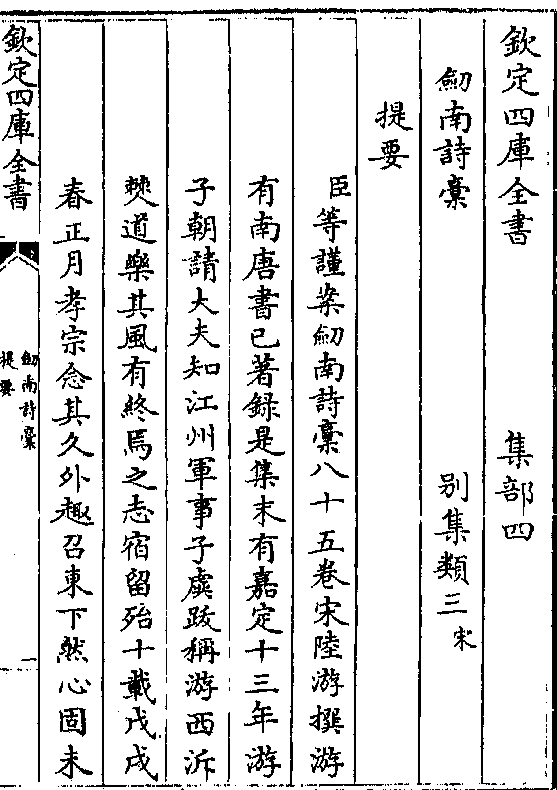 欽定四庫全書 集部四
劒南詩稾 別集類三宋
提要
臣等謹案劒南詩稾八十五卷宋陸游撰游
有南唐書已著録是集末有嘉定十三年游
子朝請大夫知江州軍事子虡跋稱游西泝
僰道樂其風有終焉之志宿留殆十載戊戌
春正月孝宗念其久外趣召東下然心固未
欽定四庫全書
劒南詩稾
提要
一